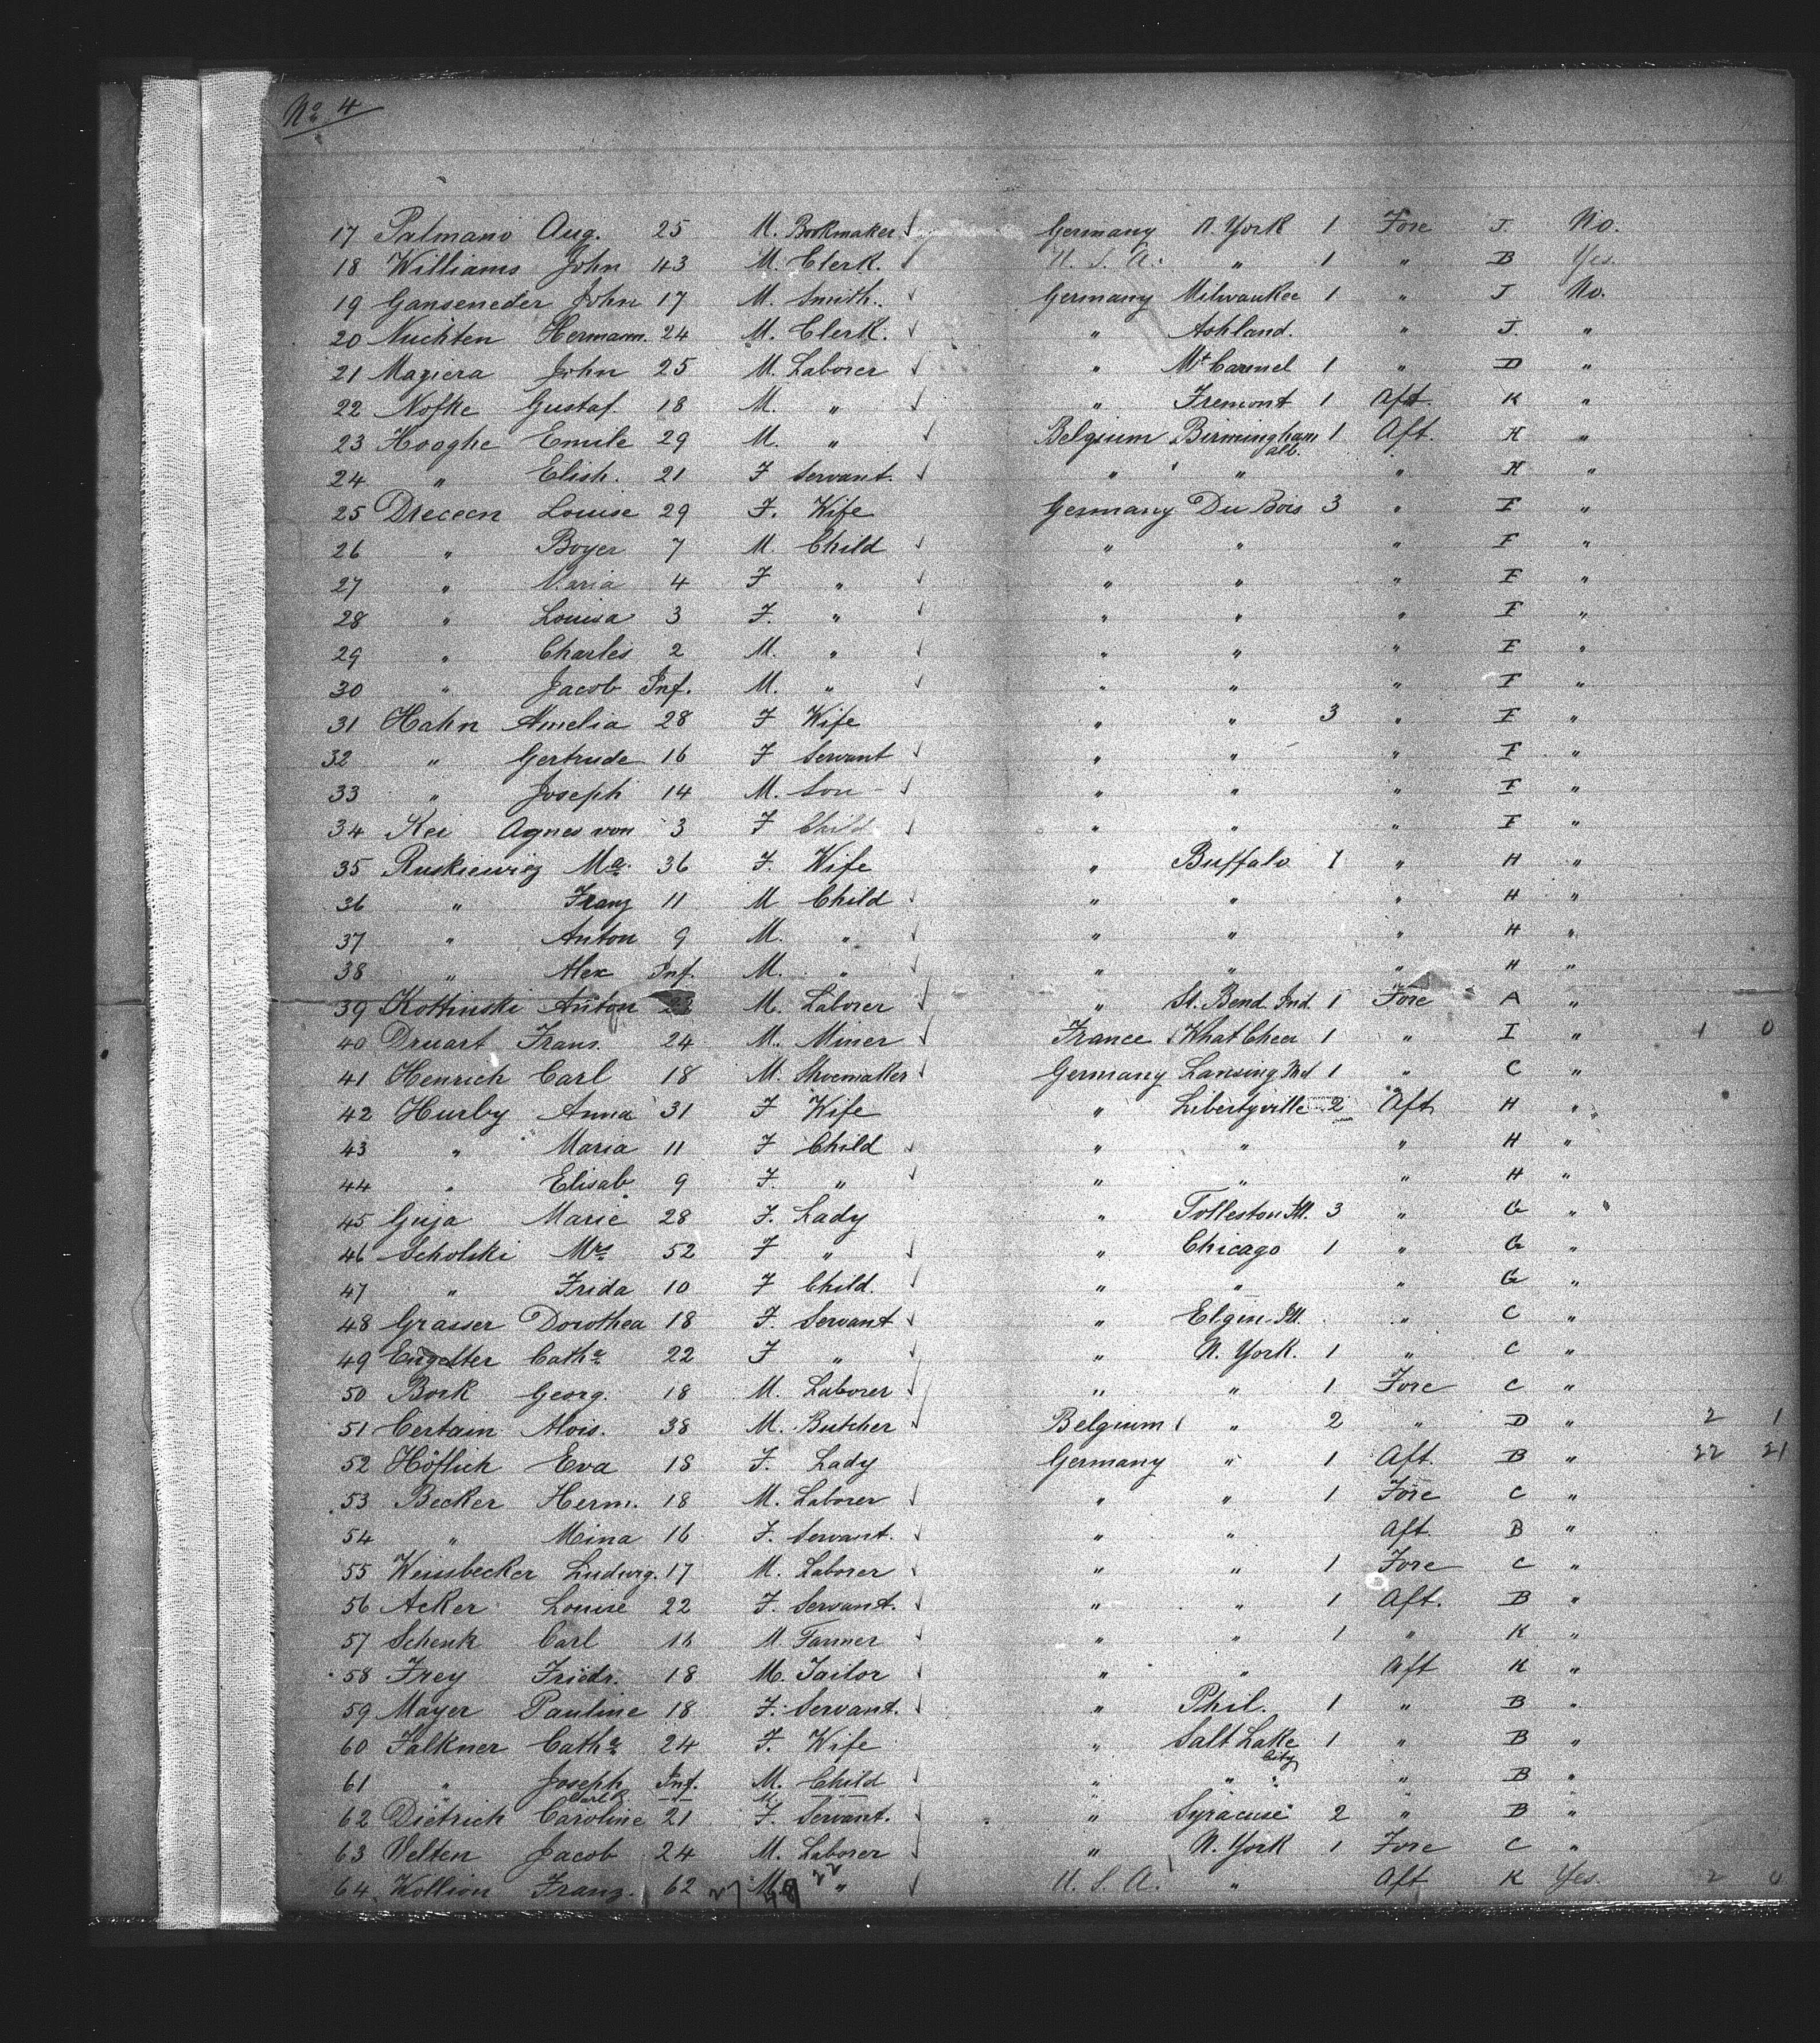 No 4
17 Palmano Aug. 25 M. Bookmaker Germany N. York 1 Fore J. No.
18 Williams John 43 M. Clerk. U. S. A. " 1 " B Yes.
19 Ganseneder John 17 M. Smith. Germany Milwaukee 1 " J No.
20 Nuchten Hermann. 24 M. Clerk. " Ashland. " J. "
21 Magiera John 25 M. Laborer " Mt Carmel 1 " D "
22 Nofke Gustaf. 18 M. " " Fremont 1 Aft. K "
23 Hooghe Emile 29 M. " Belgium Birmingham 1 Aft. H "
alb.
24 " Elish. 21 F Servant. " " " H "
25 Dreceen Louise 29 F. Wife Germany Du Bois 3 " F "
26 " Boyer 7 M. Child " " " F "
27 " Maria 4 F " " " " F "
28 " Louisa 3 F. " " " " F "
29 " Charles 2 M. " " " " F "
30 " Jacob Inf. M. " " " " F "
31 Hahn Amelia 28 F Wife " " 3 " F "
32 " Gertrude 16 F Servant " " " F "
33 " Joseph 14 M. Son " " " F "
34 Kei Agnes von 3 F Child " " " F "
35 Ruskiewicz Ma. 36 F. Wife " Buffalo 1 " H "
36 " Franz 11 M Child " " " H "
37 " Anton 9 M. " " " " H "
38 " Alex Inf. M. " " " " H "
39 Kottinski Anton 23 M. Laborer " St. Bend Ind. 1 Fore A "
40 Druart Frans. 24 M. Miner France What Cheer 1 " I " 1 0
41 Henrich Carl 18 M. Shoemaker Germany Lansing 1 " C "
42 Hurby Anna 31 F Wife " Libertyville 2 Aft H "
43 " Maria 11 F Child " " " H "
44 " Elisab. 9 F. " " " " H "
45 Guja Marie 28 F. Lady " Tolleston Ill. 3 " G "
46 Scholski Mrs 52 F " " Chicago 1 " G "
47 " Frida 10 F Child. " " " G "
48 Grasser Dorothea 18 F. Servant " Elgin Ill. " C "
49 Engelter Catha 22 F " " N. York. 1 " C "
50 Bork Georg. 18 M. Laborer " " 1 Fore C "
51 Certain Alois. 38 M. Butcher Belgium " 2 " D " 2 1
52 Höflich Eva 18 F. Lady Germany " 1 Aft. B " 22 21
53 Becker Herm. 18 M. Laborer " " 1 Fore C "
54 " Mina 16 F. Servant. " " Aft. B "
55 Weissbecker Ludwig. 17 M. Laborer " " 1 Fore C "
56 Acker Louise 22 F. Servant. " " 1 Aft. B "
57 Schenk Carl 16 M Farmer " " 1 " K "
58 Frey Friedr. 18 M. Tailor " " Aft K "
59 Mayer Pauline 18 F. Servant. " Phil. 1 " B "
60 Falkner Catha 24 F. Wife " Salt Lake 1 " B "
City
61 " Joseph Inf. M. Child " " " " B "
62 Dietrich Caroline 21 F. Servant. " Syracuse 2 " B "
63 Velten Jacob 24 M. Laborer " N. York 1 Fore C "
64 Kollion Franz. 62 M. " U. S. A. " Aft K Yes. 2 0